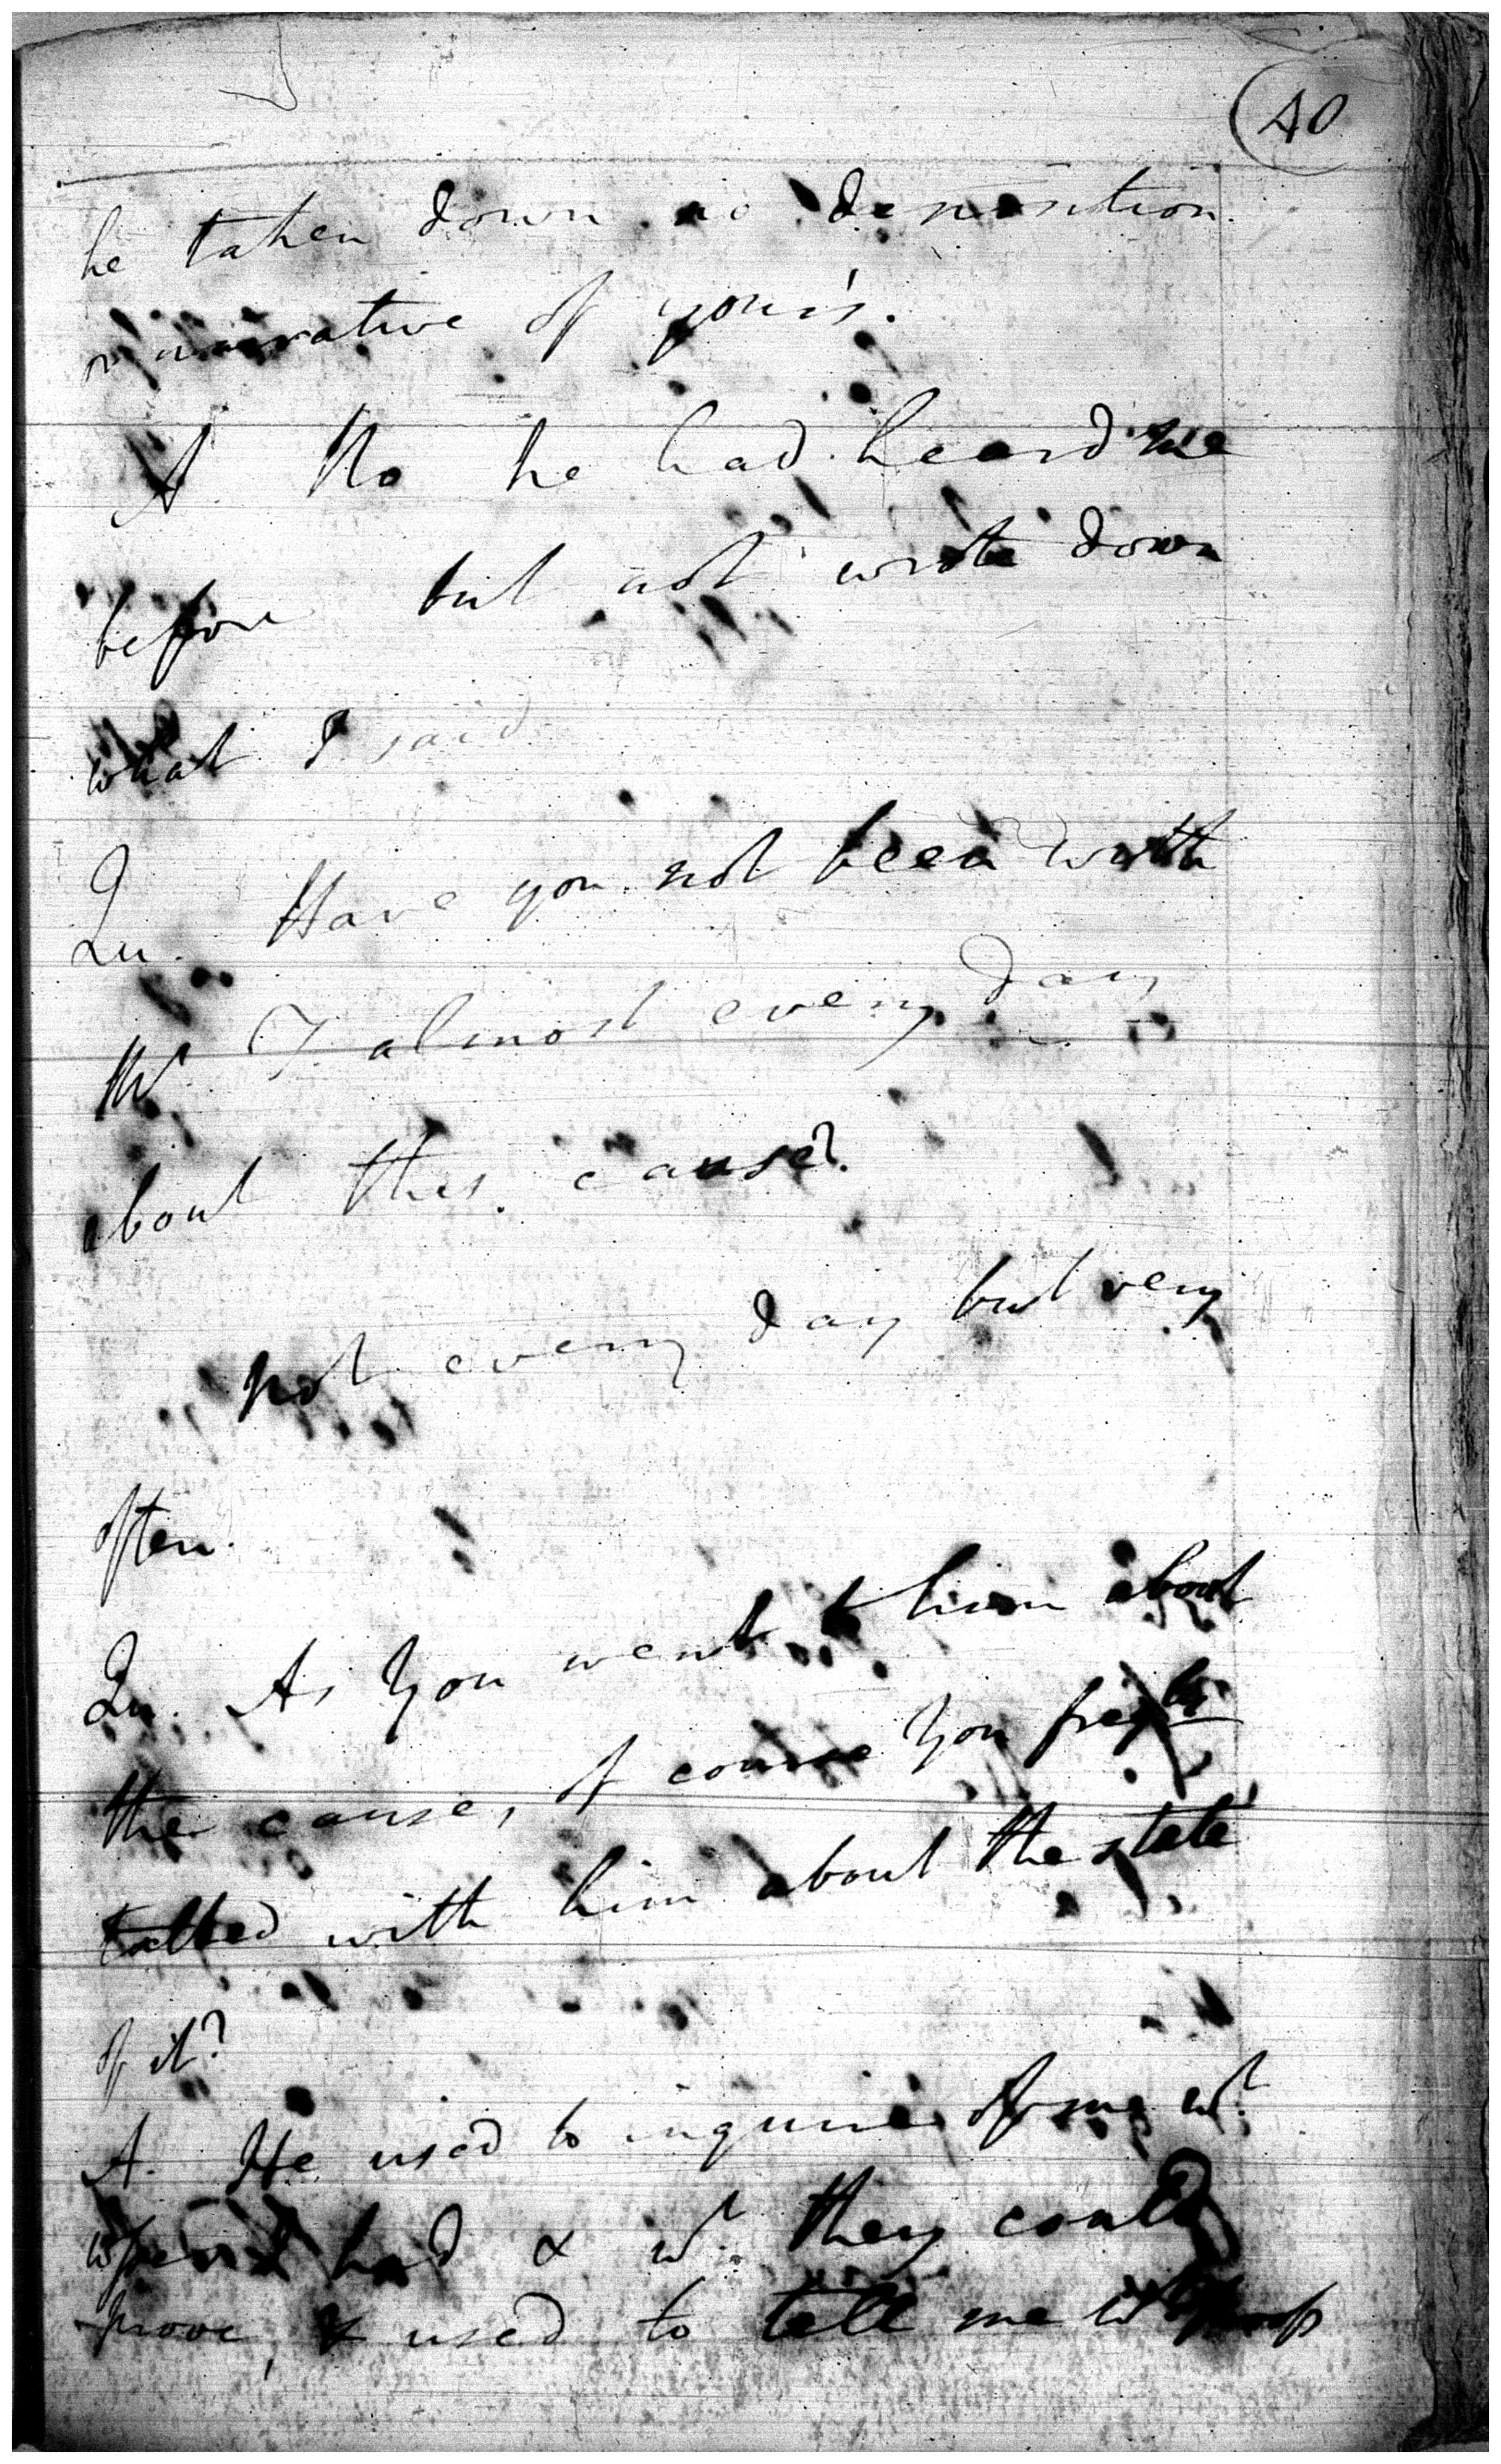 40
he taken down no deposition
or narrative of your's.
A No he had heard me
before but not wrote down
what I said
Qu. Have you not been with
Mr. T almost every day
about this cause?
not every day but very
often.
Qu. As you went to him about
the cause, of course you freqtly
talked with him about the state
of it?
A. He used to inquire of me wt.
I had & wt. they could
prove, & used to tell me wt